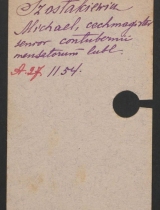 Szostakiewicz
Michael, cechmagister
senior contubernii
mensatorum lubl.
A. 27. 1154.